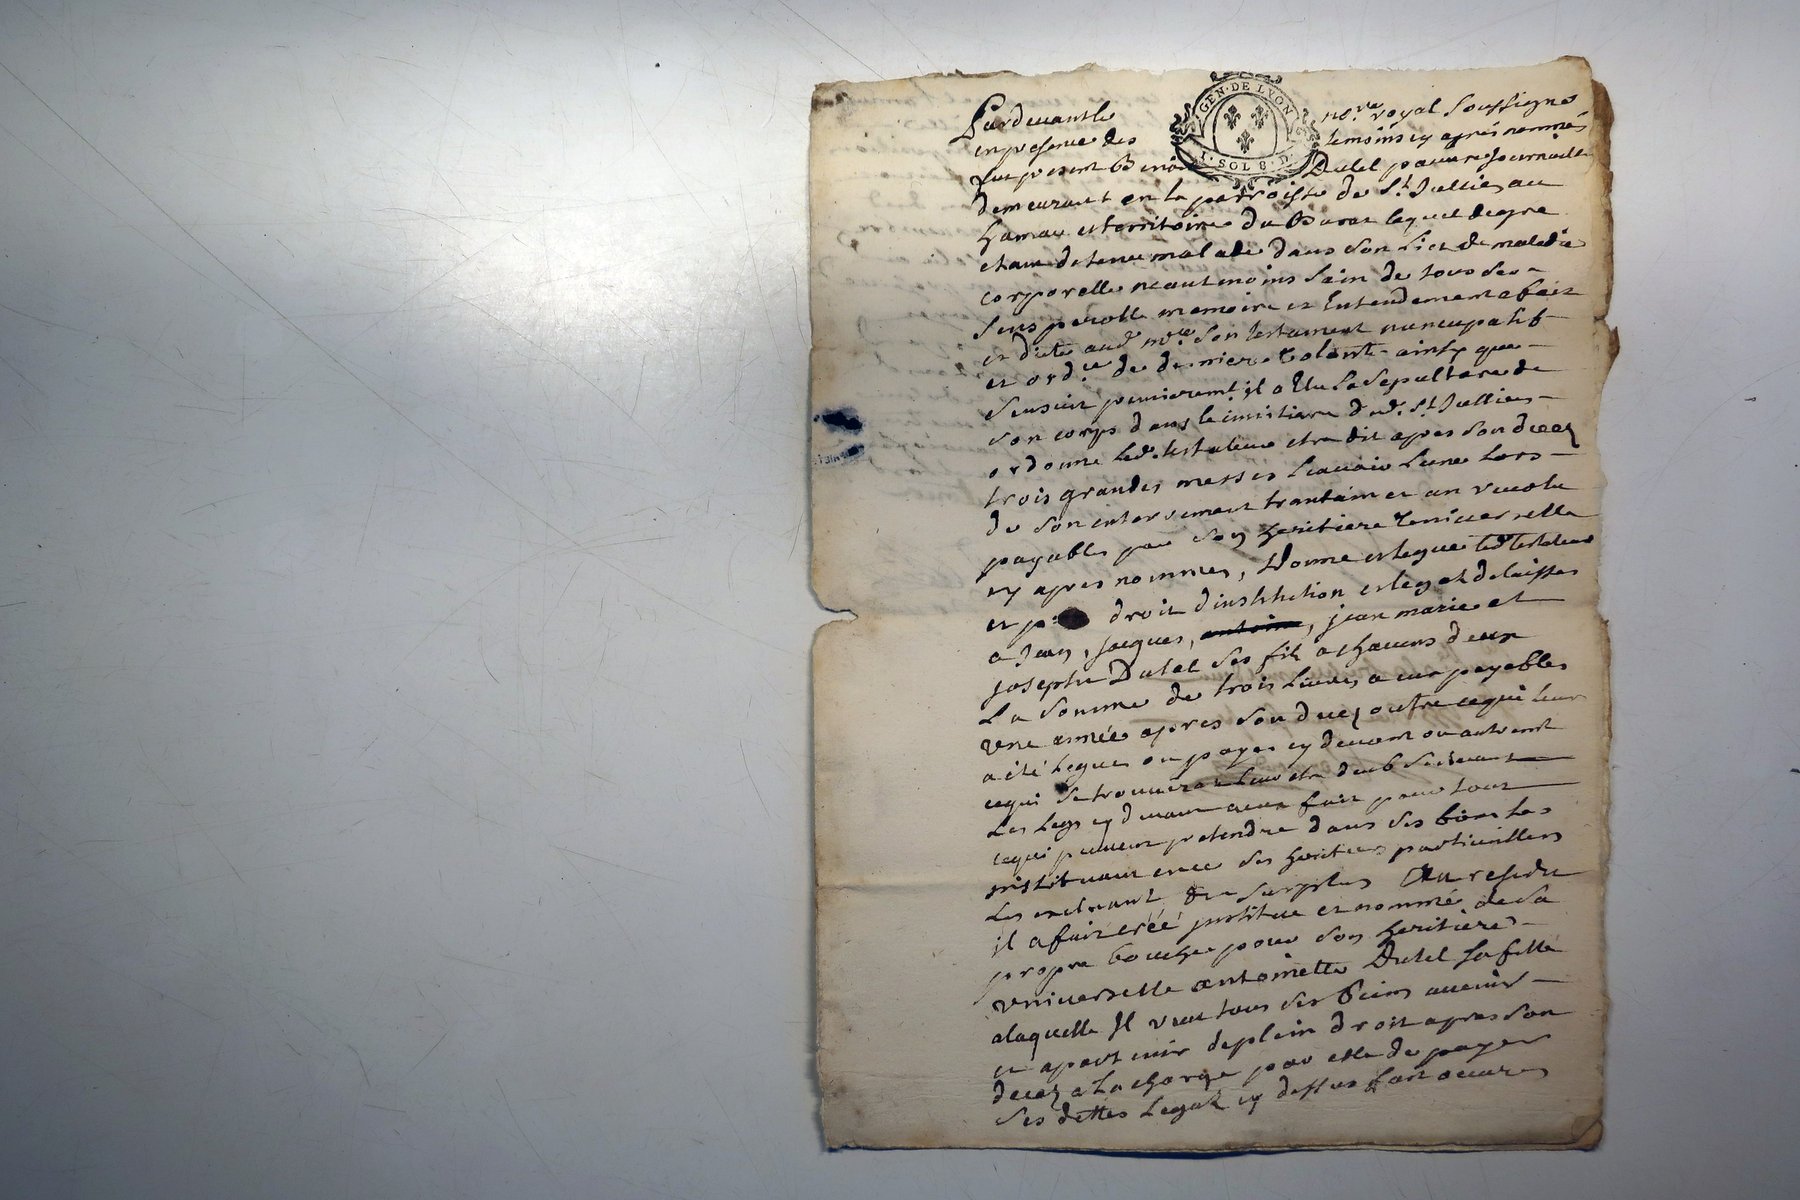 GEN · DE LYON
1 · SOL 8 · D
Pardevant le no.re royal soussigné
en presence des temoins cy apres nommés
fut present Benoi Dutel pauvre journaillié
demeurant en la parroisse de St Jullien au
hamau et territoire du Barat lequel de gre
etant detenu malade dans son lict de maladie
corporelle neantmoins sain de tous ses
sens parolle memoire et Entendement a fait
et dicté aud no.re son testament nuncupatif
et ord.ce de derniere volonté ainsy que
sensuit premierem.t il a Elu sa sepulture de
son corps dans le cimistiere dud. St Jullien
ordonne led. testateur etre dit apres son decez
trois grandes messes scavoir lune lors
de son enterrement trantain et an revolu
payables par son heritiere Universelle
cy apres nommée, Donne et legue led testateur
et p droit dinstitution et legat delaisse
a Jean, Jacques, antoine, jean marie et
joseph Dutel ses fils a chacuns deux
La somme de trois Livres, a eux payables
une année apres son decez outre ce qui leur
a été legué ou payé cy devant ou autrement
ce qui se trouvera leur etre deub
Les legs cy devant aux fait pour tout
ce qui peuvent pretendre dans ses biens les
instituant en ce ses heritiers particuilliers
Les excluant du surplus Au residu
il a fait créé institue et nommé de sa
propre bouche pour son heritiere
universelle antoinette Dutel sa fille
a laquelle Il veut tous ses biens avenir
et apartenir de plein droit apres son
decez a La charge par elle de payer
ses dettes Legat cy dessus fait